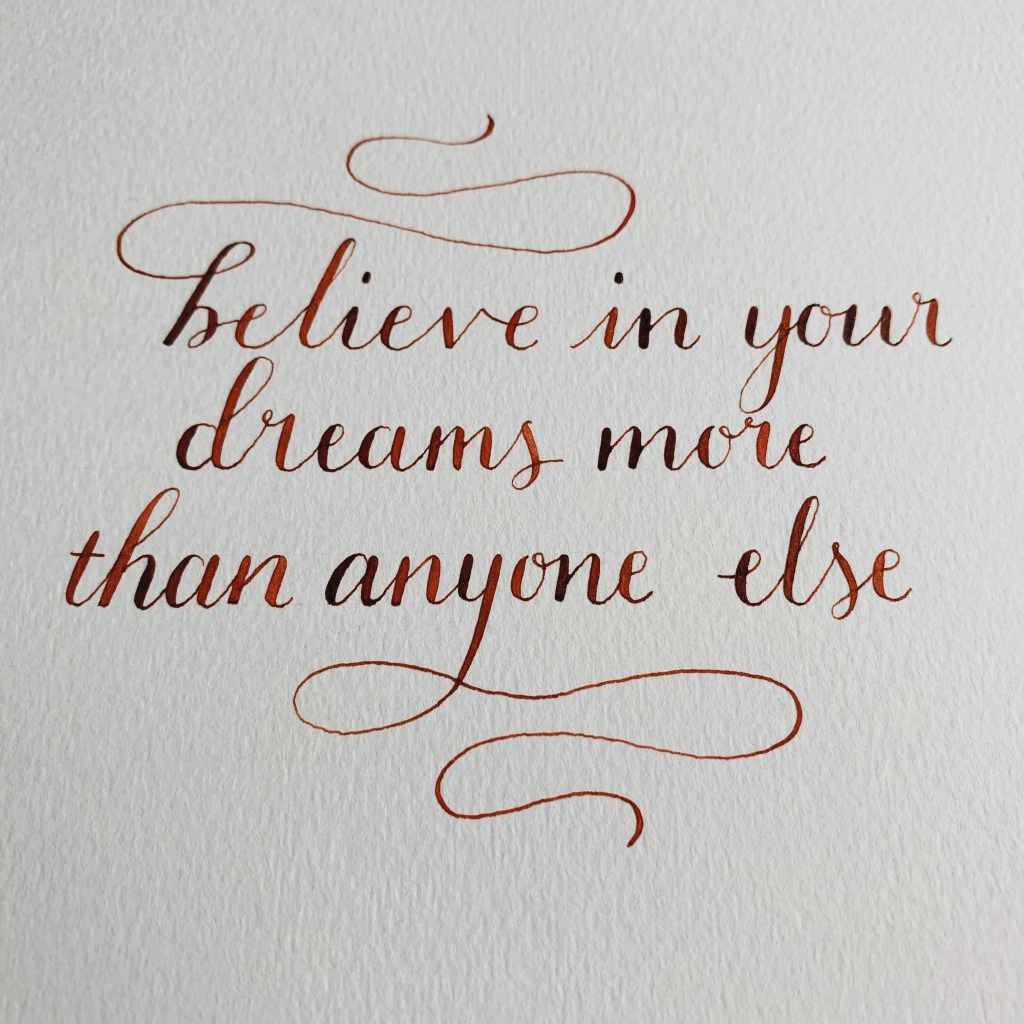 believe in your
dreams more
than anyone else